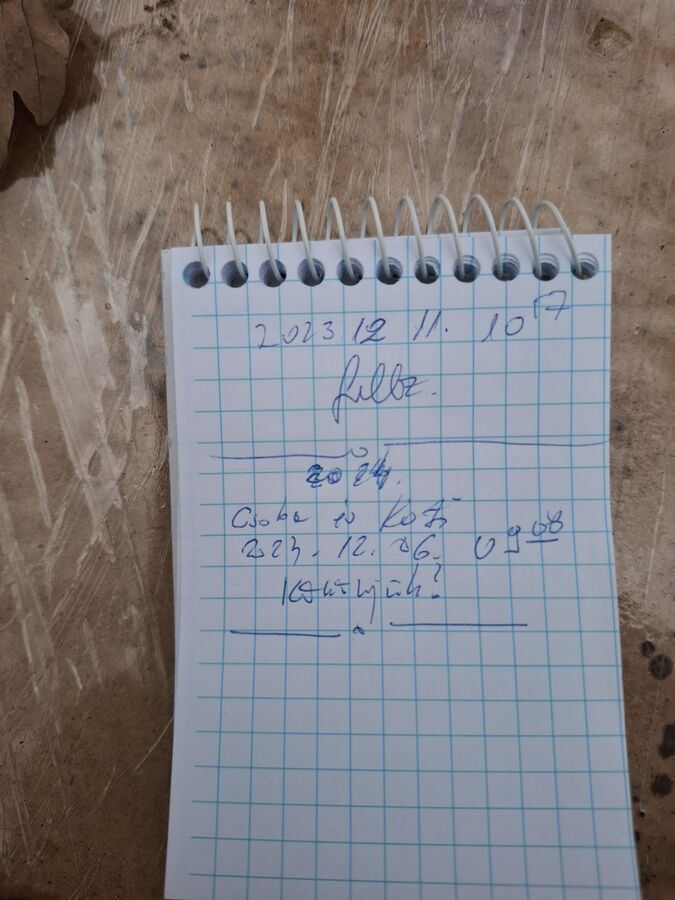 2023 12 11. 10 17
2024.
Csaba és Kati
2023. 12. 26. 09 08
Köszönjük!